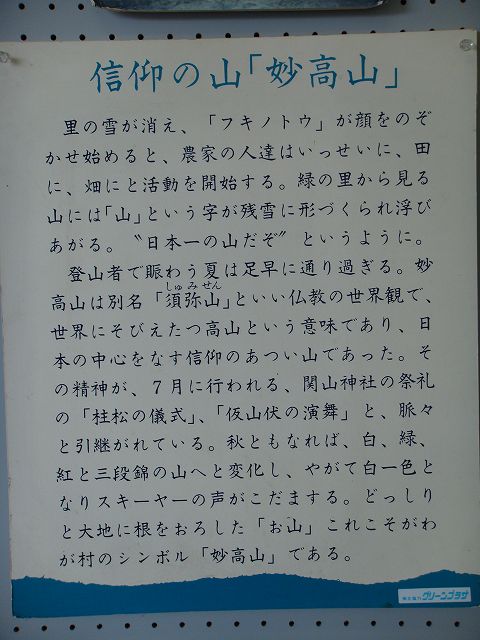 信仰の山「妙高山」
里の雪が消え、「フキノトウ」が顔をのぞ
かせ始めると、農家の人達はいっせいに、田
に、畑にと活動を開始する。緑の里から見る
山には「山」という字が残雪に形づくられ浮び
あがる。〝日本一の山だぞ〟というように。
登山者で賑わう夏は足早に通り過ぎる。妙
しゅみせん
高山は別名「須弥山」といい仏教の世界観で、
世界にそびえたつ高山という意味であり、日
本の中心をなす信仰のあつい山であった。そ
の精神が、7月に行われる、関山神社の祭礼
の「柱松の儀式」、「仮山伏の演舞」と、脈々
と引継がれている。秋ともなれば、白、緑、
紅と三段錦の山へと変化し、やがて白一色と
なりスキーヤーの声がこだまする。どっしり
と大地に根をおろした「お山」これこそがわ
が村のシンボル「妙高山」である。
東北電力 グリーンプラザ